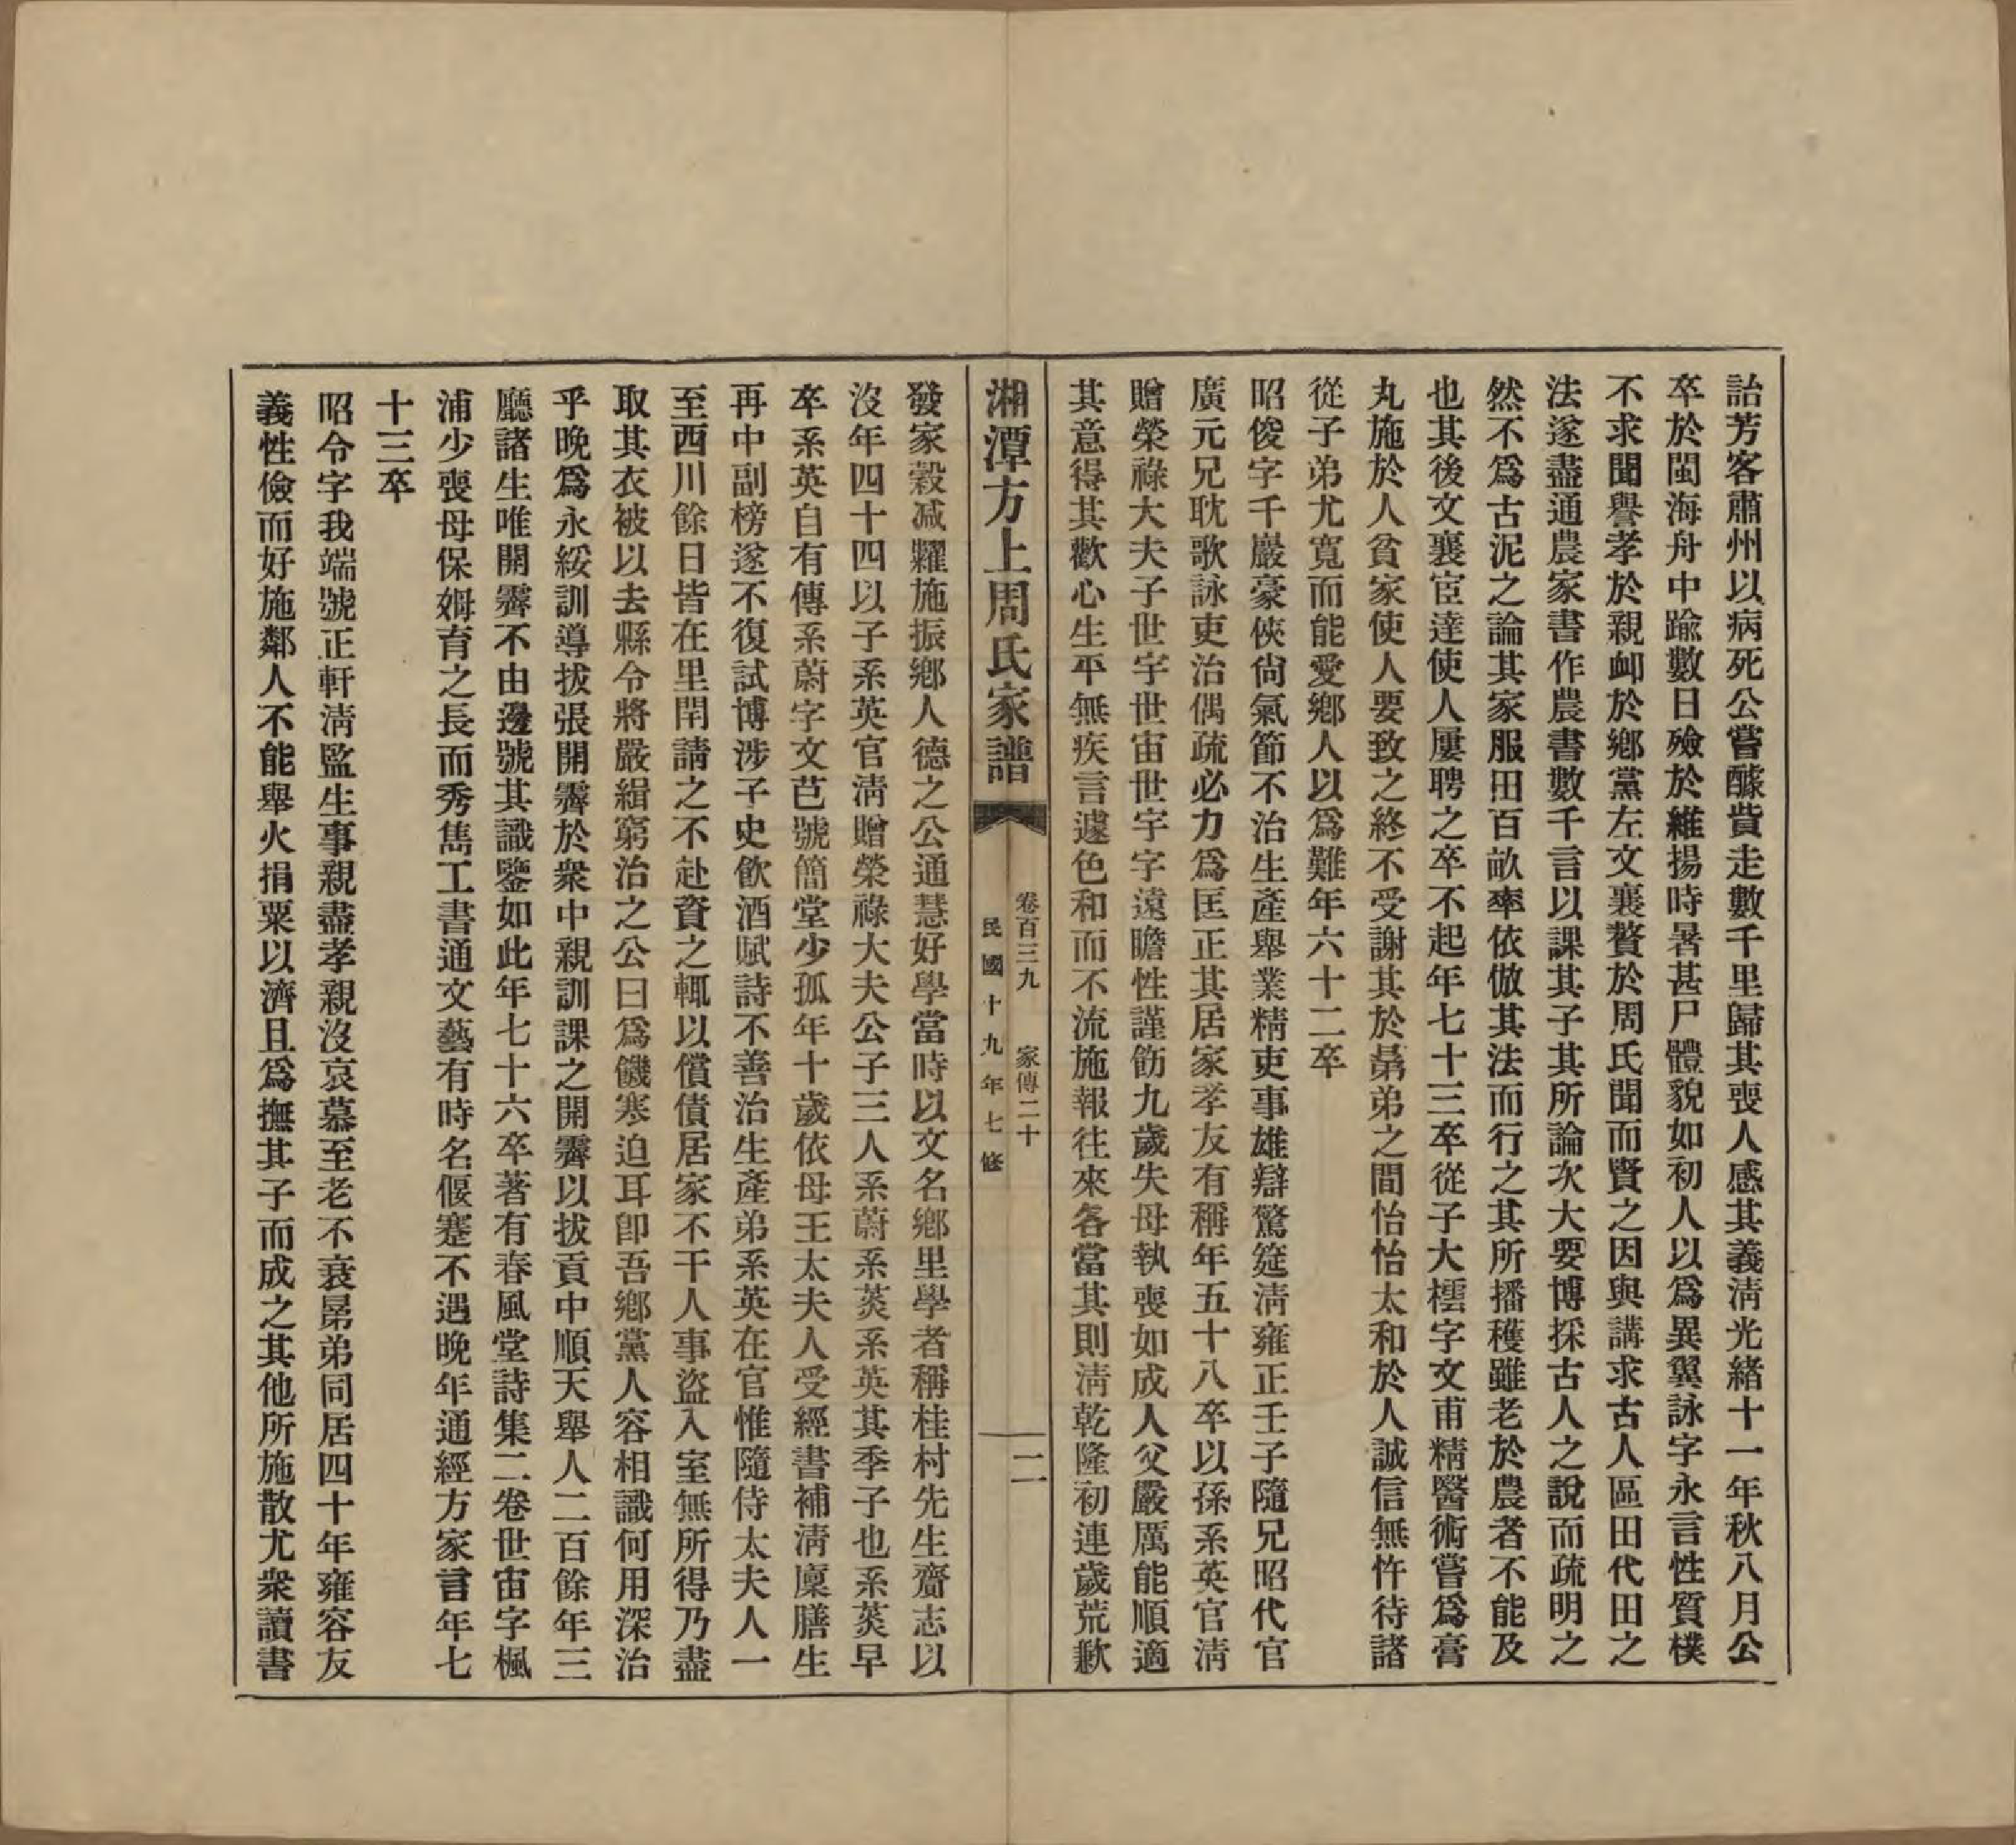 詒芳客肅州以病死公嘗醵貲走數千里歸其喪人感其義淸光緖十一年秋八月公
卒於閩海舟中踰數日殮於維揚時暑甚尸體貌如初人以爲異翼詠字永言性質樸
不求聞譽孝於親卹於鄕黨左文襄贅於周氏聞而賢之因與講求古人區田代田之
法遂盡通農家書作農書數千言以課其子其所論次大要博採古人之說而疏明之
然不爲古泥之論其家服田百畝率依倣其法而行之其所播穫雖老於農者不能及
也其後文襄宦達使人屢聘之卒不起年七十三卒從子大樰字文甫精醫術嘗爲膏
丸施於人貧家使人要致之終不受謝其於晜弟之間怡怡太和於人誠信無忤待諸
從子弟尤寬而能愛鄕人以爲難年六十二卒
昭俊字千巖豪俠尙氣節不治生產舉業精吏事雄辯驚筵淸雍正壬子隨兄昭代官
廣元兄耽歌詠吏治偶疏必力爲匡正其居家孝友有稱年五十八卒以孫系英官淸
贈榮祿大夫子世宇世宙世宇字遠瞻性謹飭九歲失母執喪如成人父嚴厲能順適
其意得其歡心生平無疾言遽色和而不流施報往來各當其則淸乾隆初連歲荒歉
湘潭方上周氏家譜
卷百三九 家傳二十
民國十九年七修
二
發家穀減糶施振鄕人德之公通慧好學當時以文名鄕里學者稱桂村先生齎志以
沒年四十四以子系英官淸贈榮祿大夫公子三人系蔚系蒸系英其季子也系蒸早
卒系英自有傳系蔚字文芭號簡堂少孤年十歲依母王太夫人受經書補淸廩膳生
再中副榜遂不復試博涉子史飮酒賦詩不善治生產弟系英在官惟隨侍太夫人一
至西川餘日皆在里閈請之不赴資之輒以償債居家不干人事盜入室無所得乃盡
取其衣被以去縣令將嚴緝窮治之公曰爲饑寒迫耳卽吾鄕黨人容相識何用深治
乎晚爲永綏訓導拔張開霽於衆中親訓課之開霽以拔貢中順天舉人二百餘年三
廳諸生唯開霽不由邊號其識鑒如此年七十六卒著有春風堂詩集二卷世宙字楓
浦少喪母保姆育之長而秀雋工書通文藝有時名偃蹇不遇晚年通經方家言年七
十三卒
昭令字我端號正軒淸監生事親盡孝親沒哀慕至老不衰晜弟同居四十年雍容友
義性儉而好施鄰人不能舉火捐粟以濟且爲撫其子而成之其他所施散尤衆讀書